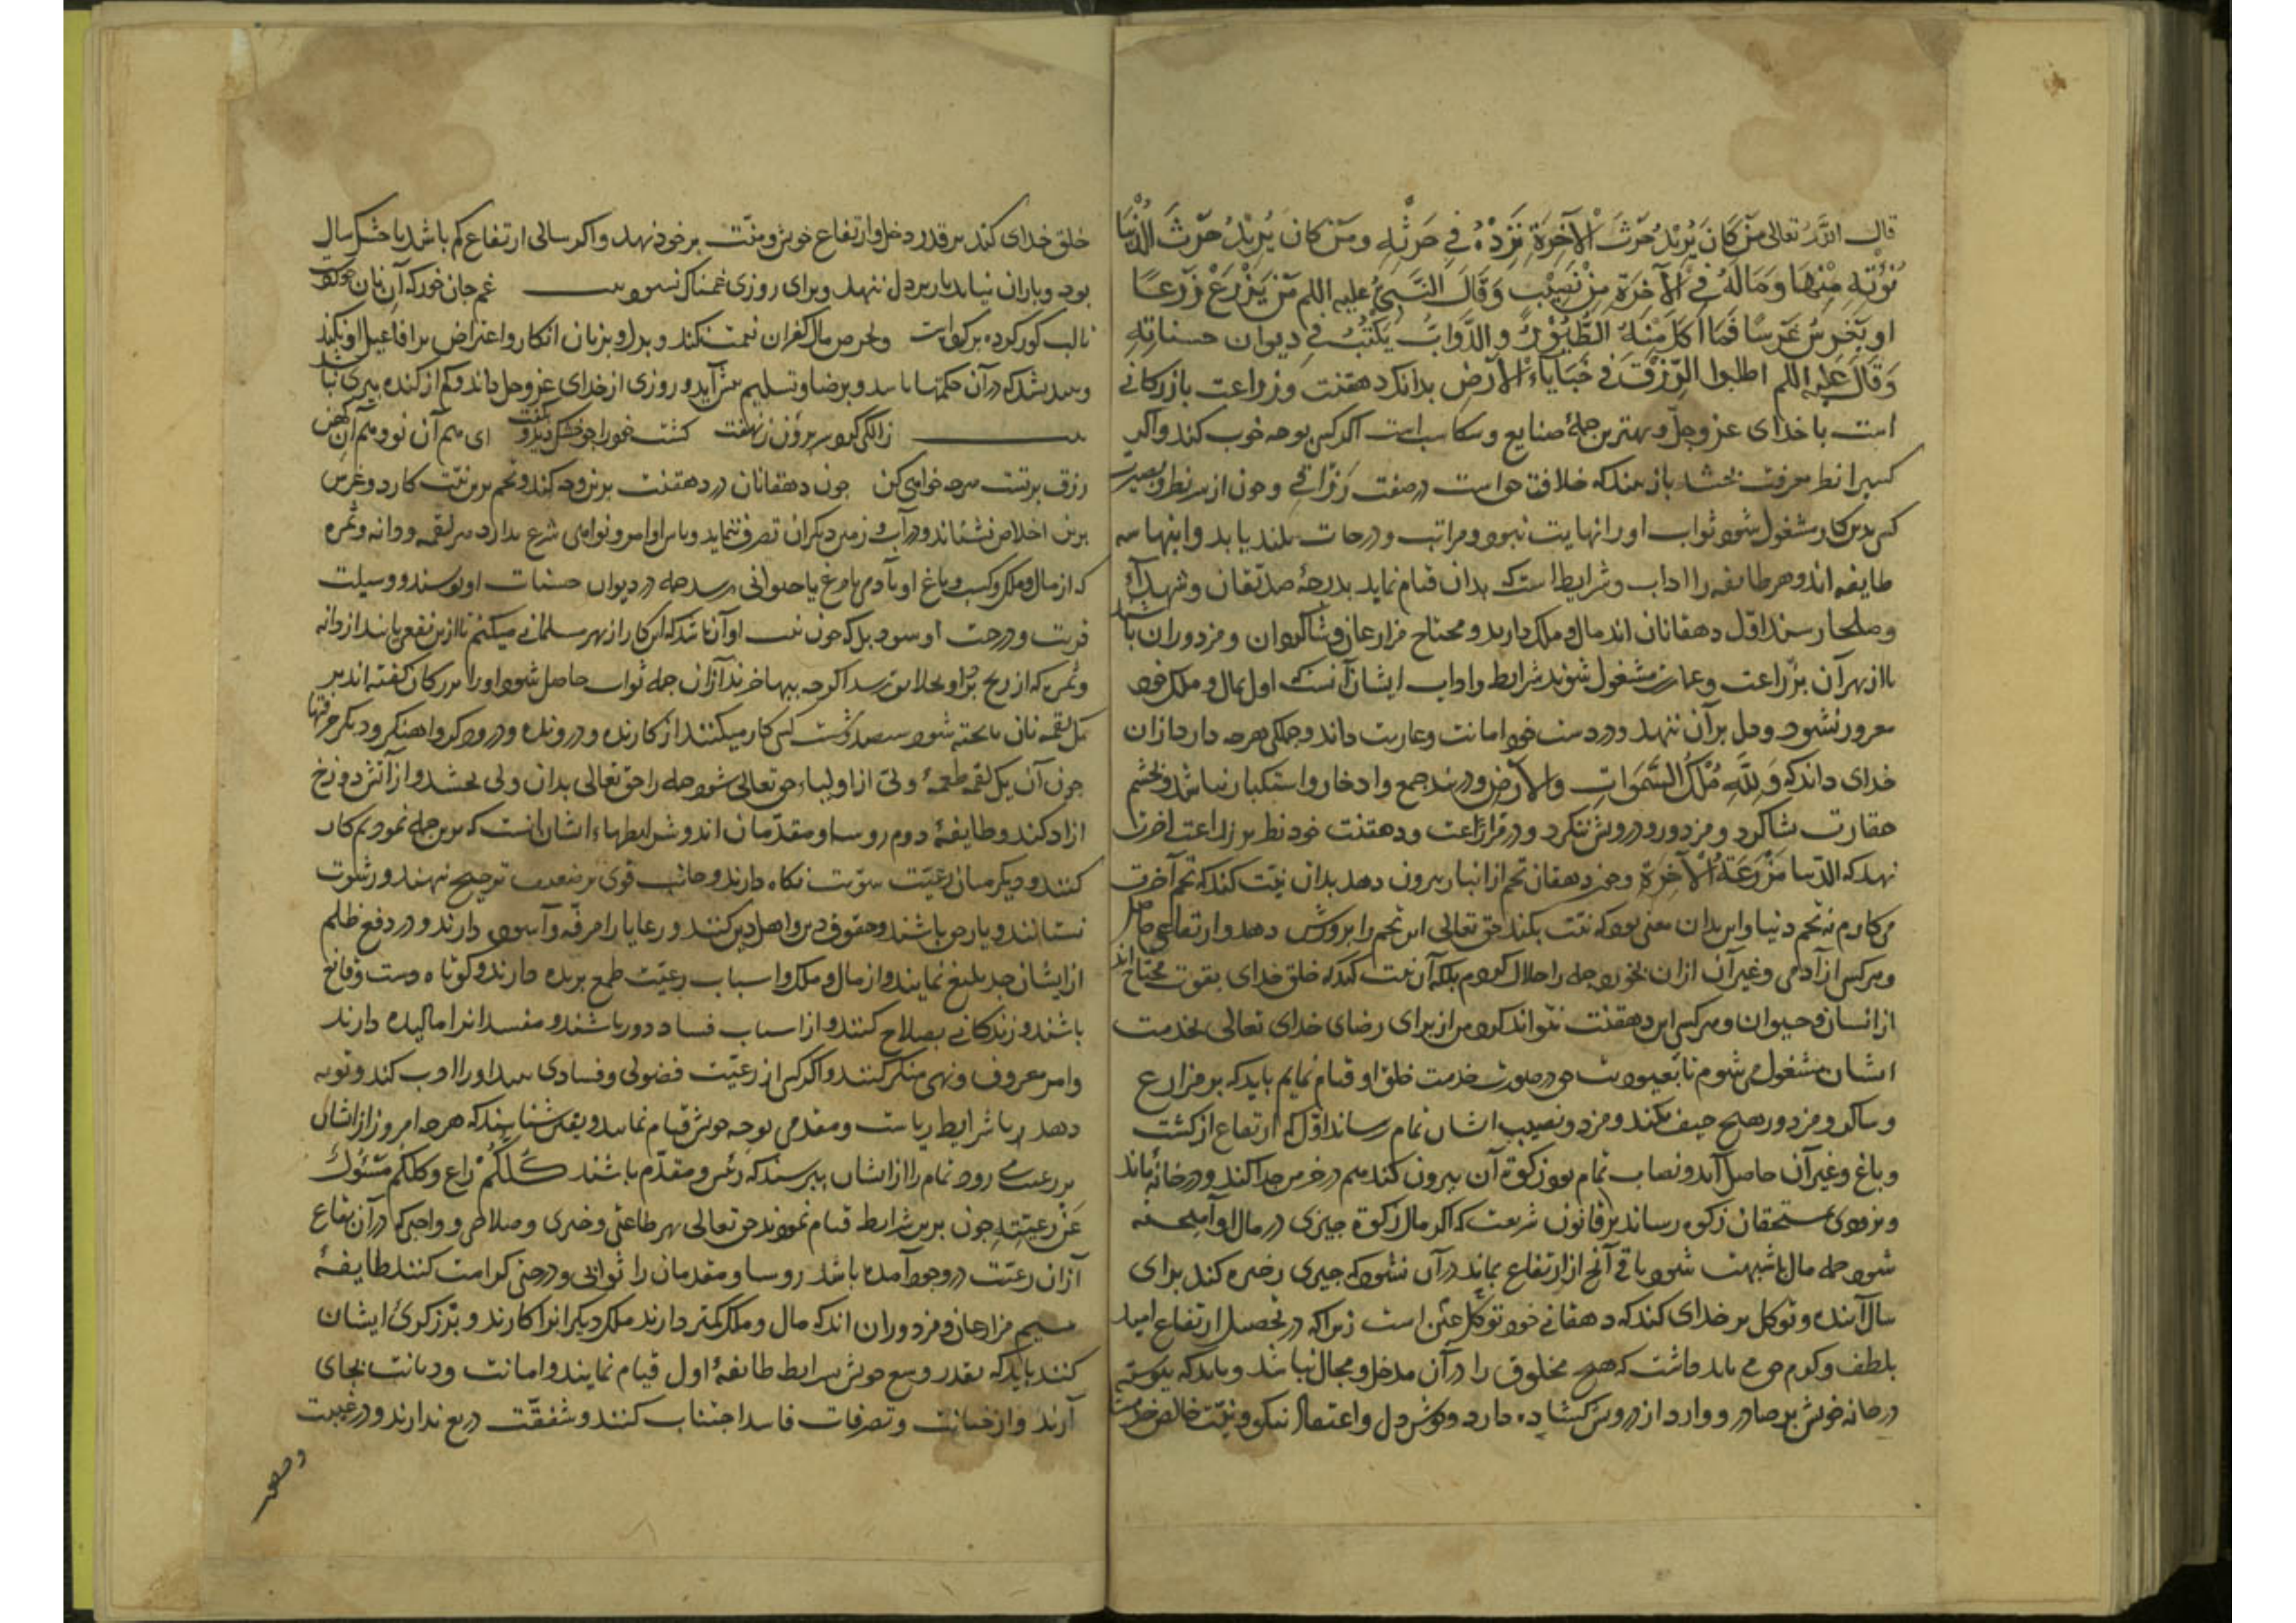 قال الله تعالی مَن كَانَ يُرِيدُ حَرْثَ الْآخِرَةِ نَزِدْ لَهُ فِي حَرْثِهِ ومَن كان يُرِيدُ حَرْثَ الدُّنْيَا
نُؤْتِهِ مِنْهَا وَمَالَهُ فِي الْآخِرَةِ مِنْ نَصِيْبٍ وَقَالَ النَّبِيُّ علیه السلم مَنْ يَزْرَعْ زَرْعًا
او یَغْرِسْ غَرْسًا فَمَا اَكَلَ مِنْهُ الطُّيُوْرُ والدَّوَابُّ يُكْتَبُ فِي دیوان حسناته
وَقَالَ عَلَیْهِ السلم اطلبوا الرِّزْقَ فِي خَبَايَاءِ الْاَرْضِ بدانک دهقنت وزراعت بازرکانی
است با خدای عزوجلّ و بهترین جملهٔ صنایع و مکاسب است اکر کسی بوجه خوب کند واکر
کسیرا نظر معرفت بخشد باز بیند که خلافت حق است در صفت رَزّاقی و چون از سر نظر وبصیرت
کسی بدین کار مشغول شود ثواب اورا نهایت نبود ومراتب ودرجات بلند یابد واینها سه
طایفه اند وهر طایفه را اداب وشرایط است که بدان قیام نماید بدرجهٔ صدّیقان وشهدا
وصلحا رسند اوّل دهقانان اند مال وملک دارند ومحتاج مزارعان وشاکردان ومزدوران باشند
تا از بهر آن بزراعت وعمارت مشغول شوند شرایط واداب ایشان آنست که اول بمال وملک خود
مغرور نشود ودل بر آن ننهد ودر دست خود امانت وعاریت داند وجملکی هرچه دارد ازان
خدای داند که وَلِلّهِ مُلْكُ السَّمَوَاتِ والْاَرْضِ ودر بند جمع وادخار واستکبار نباشد وبچشم
حقارت بشاکرد ومزدور ودرویش ننکرد ودر مزراعت ودهقنت خود نظر بر زراعت آخرت
نهد که الدّنیا مَزْرَعَةُ الْآخِرَةِ وچون دهقان تخم از انبار بیرون دهد بدان نیّت کند که تخم آخرت
می کارم نه تخم دنیا واین بدان معنی بود که نیّت بکند حق تعالی این تخم را پرورش دهد وارتفاعی حاصل
وهر کس از آدمی وغیر آن ازان بخورد جمله را حلال کردم بلکه آن نیت کند که خلق خدای بقوت محتاج اند
از انسان وحیوان وهر کس این دهقنت نتواند کرد من از برای رضای خدای تعالی بخدمت
ایشان مشغول می شوم تا بعبودیت حق در صورت خدمت خلق او قیام نمایم باید که بر مزارع
وشاکرد ومزدور هیچ حیف نکند ومزد ونصیب ایشان تمام رساند اوّل که ارتفاع از کشت
وباغ وغیر آن حاصل آید ونصاب تمام بود زکوة آن بیرون کند هم در خرمن جدا کند ودر خانه نماند
وبزودی بمستحقان زکوة رساند بر قانون شریعت که اکر مال زکوة چیزی در مال او آمیخته
شود جمله مال با شبهت شود باقی آنچ از ارتفاع بماند در آن نشود که چیزی ذخیره کند برای
سال آینده وتوکل بر خدای کند که دهقانی خود توکّل عین است زیراکه در تحصیل ارتفاع امید
بلطف وکرم حق می باید داشت که هیچ مخلوق را در آن مدخل ومجال نباشد وباید که پیوسته
در خانه خویش بر صادر ووارد از درویش کشاده دارد وبخوش دل واعتقاد نیکو ونیّت خالص خدمت
خلق خدای کند بر قدر دخل وارتفاع خویش ومنّت بر خود نهد واکر سالی ارتفاع کم باشد یا خشک سال
بود وباران نیاید بار بر دل ننهد وبرای روزی غمناک نشود بیت غم جان خور که آن نان خورد
تا لب کور کرده بر کردست وبحرص مال کفران نعمت نکند وبدل وبزبان انکار واعتراض بر افاعیل او نکند
که در آن حکمتها باشد وبرضا وتسلیم پیش آید وروزی از خدای عزوجل داند وکم از کنده پیری نباشد
بیت زالکی کرد سر برون زنهفت کشت خود را چو خشک دید و بکفت ای هم آن نو وهم آن کهن
رزق بر تست هرچه خواهی کن چون دهقانان در دهقنت برین وجه کنند وتخم برین نیّت کارد وغرس
برین اخلاص نشاند ودر آب وزمین دیکران تصرف ننماید وپاس اوامر ونواهی شرع بدارد هر لقمه ودانه وثمره
که از مال وملک وکسب وباغ او بآدمی یا مرغ یا حیوانی رسد جمله در دیوان حسنات او نویسند ووسیلت
قربت ودرجت او شود بلکه چون نیت او آن باشد که این کار از بهر مسلمانی میکنم تا ازین نفعی یابند از دانه
وثمره که از ریح بر او بخلایق رسد اکرچه ببها خرند آزان جمله ثواب حاصل شود اورا بزرکان کفته اند بر
یک لقمه نان تا پخته شود سیصد وشست کس کار میکنند از کارنده ودرونده ودرودکر واهنکر ودیکر حرفتها
چون آن یک لقمه طعمهٔ ولیّ از اولیاء حق تعالی شود جمله را حق تعالی بدان ولی بخشد واز آتش دوزخ
ازاد کند وطایفهٔ دوم روسا ومقدّمان اند وشرایطهاء ایشان انست که برین جمله نمودیم کار
کنند ودیکر میان رعیّت سویّت نکاه دارند وجانب قوی بر ضعیف ترجیح ننهند ورشوت
نستانند ویار حق باشند وحقوق دین واهل دین کنند ورعایا را مرفّه وآسوده دارند ودر دفع ظلم
از ایشان جد بلیغ نمایند واز مال وملک واسباب رعیّت طمع بریده دارند وکوتاه دست وقانع
باشند وزندکانی بصلاح کنند واز اسباب فساد دور باشند ومفسدانرا مالیده دارند
وامر معروف ونهی منکر کنند واکر کسی از رعیّت فضولی وفسادی بیند اورا ادب کند وتوبه
دهد با شرایط ریاست ومقدمی بوجه خویش قیام نمایند وبیقین شناسند که هرچه امروز از ایشان
بر رعیت می رود تمام را از ایشان بپرسند که رئیس ومقدّم باشند كُلُّكُمْ رَاعٍ وكلكم مَسْئُوْلٌ
عَنْ رعیتِهِ چون برین شرایط قیام نمودند حق تعالی بهر طاعتی وخیری وصلاحی وواجبی که در آن بقاع
آزان رعیّت در وجود آمده باشد روسا ومقدمان را ثوابی ودرجتی کرامت کنند طایفهٔ
سیم مزارعان ومزدوران اند که مال وملک کمتر دارند ملک دیکرانرا کارند وبرزکریٔ ایشان
کنند باید که بقدر وسع خویش بشرایط طایفهٔ اول قیام نمایند وامانت ودیانت بجای
آرند واز خیانت وتصرفات فاسد اجتناب کنند وشفقّت دریغ ندارند ودر غیبت